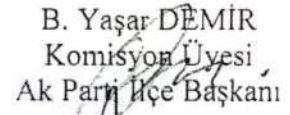 B. Yaşar DEMİR
Komisyon Üyesi
Ak Parti İlçe Başkanı